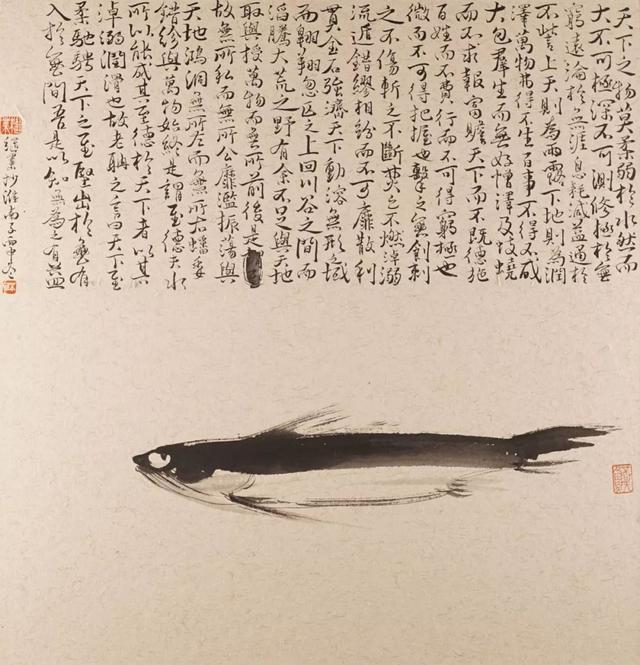 天下之物莫柔弱於水然而
大不可極深不可測修極於無
窮遠淪於無涯息耗減益通於
不訾上天則為雨露下地則為潤
澤萬物弗得不生百事不得不成
大包群生而無好憎澤及蚑蟯
而不求報富贍天下而不既德施
百姓而不費行而不可得窮極也
微而不可得把握也擊之無創刺
之不傷斬之不斷焚之不燃淖溺
流遁錯繆相紛而不可靡散利
貫金石強濟天下動溶無形之域
而翱翔忽區之上回川谷之間而
滔騰大荒之野有餘不足與天地
取與授萬物而無所前後是
故無所私而無所公靡濫振蕩與
天地鴻洞無所左而無所右蟠委
錯紾與萬物始終是謂至德夫水
所以能成其至德於天下者以其
淖溺潤滑也故老聃之言曰天下至
柔馳騁天下之至堅出於無有
入於無間吾是以知無為之有益
業抄淮南子丙申冬